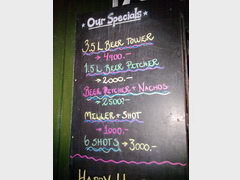 Our Specials
3.5L BEER TOWER
→ 4900.-
1.5L BEER PITCHER
→ 2000.-
BEER PITCHER + NACHOS
→ 2500.-
MILLER + SHOT
→ 1000.-
6 SHOTS → 3000.-
HAPPY